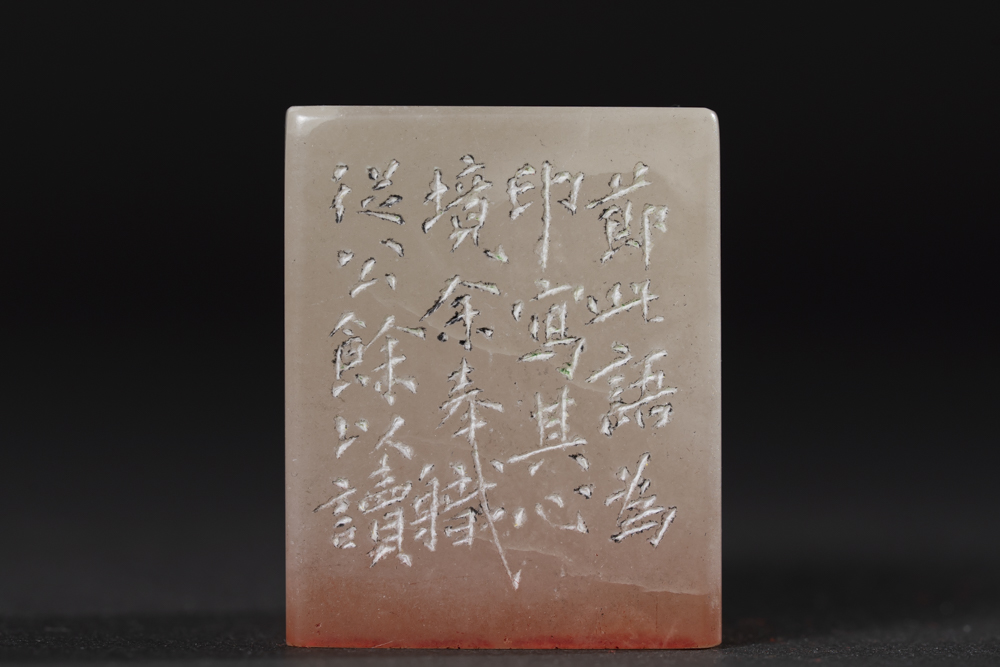 節此語為
印寫其心
境余奉職
從公餘以讀